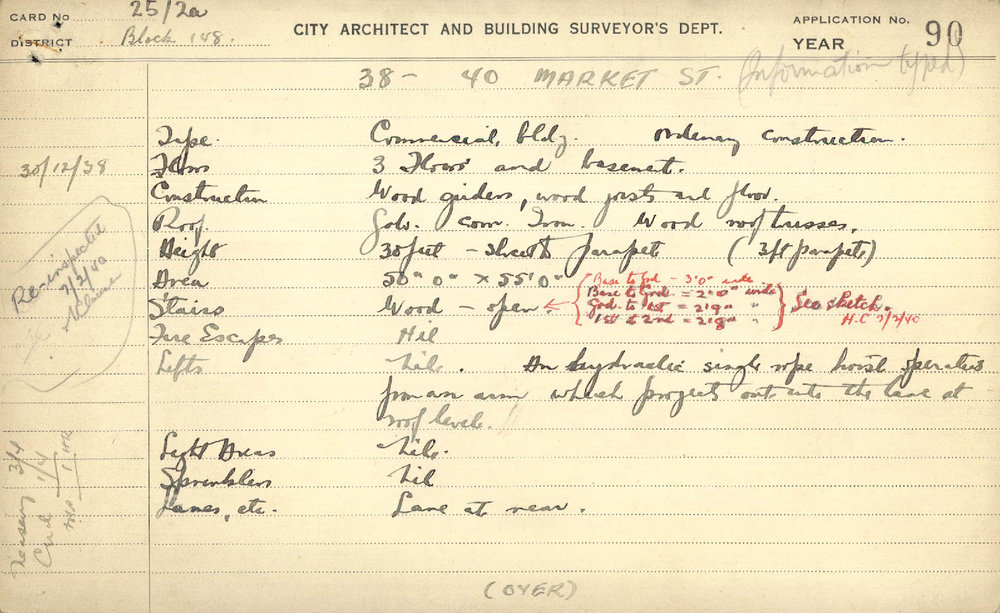 CARD No 25/2a
DISTRICT Block 148.
CITY ARCHITECT AND BUILDING SURVEYOR'S DEPT.
APPLICATION No.
YEAR
90
38 - 40 MARKET ST. (Information typed)
30/12/38
Re-inspected
7/2/40
Type. Commercial, bldg. Ordinary construction.
Floors 3 Floors and basement.
Construction Wood girders, wood joists and floor.
Roof. Galv. Corr. Iron. Wood roof trusses.
Height 30 feet - street to parapets (3ft parapets)
Area 50' 0" x 55' 0"
Stairs Wood - open
Base to Grd - 3'0" wide
Base to Grd. = 2'8" wide
Grd. to 1st = 2'9" "
1st to 2nd = 2'8" "
See sketch.
H.C 7/2/40
Fire Escapes Nil
Lifts Nil. An hydraulic single rope hoist operates
from an arm which projects out into the lane at
roof level.
Light Areas Nil.
Sprinklers Nil
Lanes, etc. Lane at rear.
3/4
1/4
(OVER)